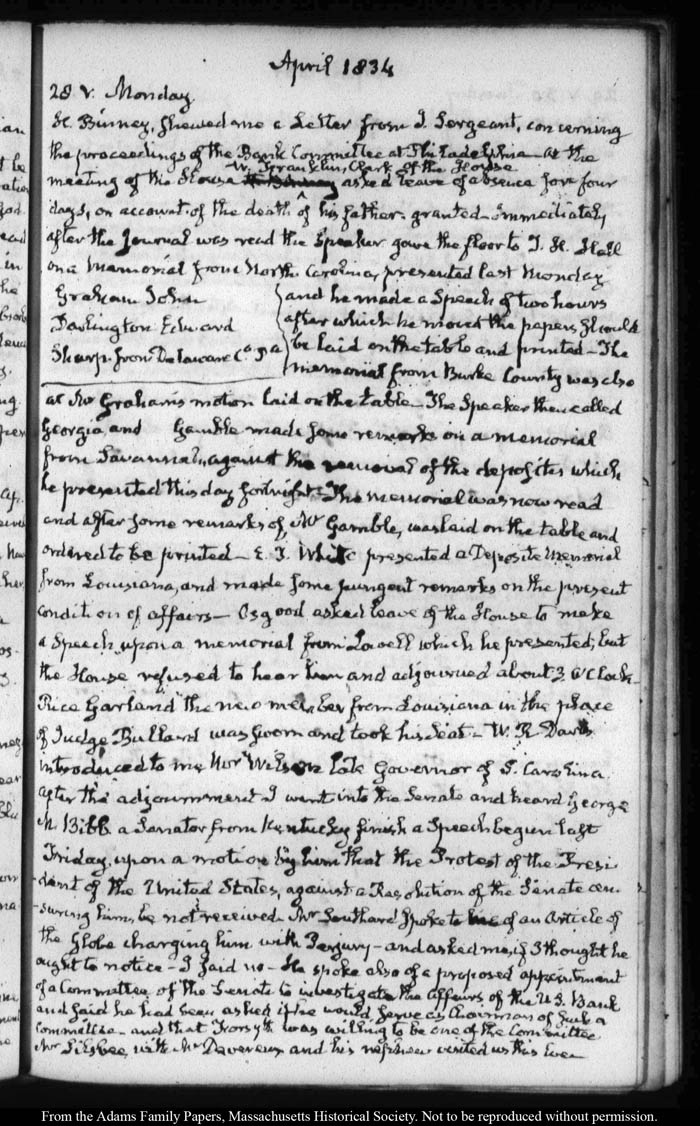 April 1834
28 V. Monday
H. Binney, shewed me a Letter from J. Sergeant, concerning
the proceedings of the Bank Committee at Philadelphia – at the
W. Franklin, Clerk of the House
meeting of the House asked leave of absence for four
days, on account of the death of his father. granted – Immediately
after the Journal was read the Speaker gave the floor to T. H. Hall
on a Memorial from North Carolina, presented last Monday
Graham John
Darlington Edward
Sharp. from Delaware Co. Pa
and he made a Speech of two hours
after which he moved the papers should
be laid on the table and printed – The
memorial from Burke County was also
at Mr Graham's motion laid on the table – The Speaker then called
Georgia and Gamble made some remarks on a memorial
from Savannah, against the removal of the deposites which
he presented this day fortnight – The memorial was now read
and after some remarks of Mr Gamble, was laid on the table and
ordered to be printed – E. D. White presented a Deposite Memorial
from Louisiana, and made some pungent remarks on the present
condition of affairs – Osgood asked leave of the House to make
a Speech upon a memorial from Lowell which he presented; but
the House refused to hear him and adjourned about 3 O'Clock –
Rice Garland the new member from Louisiana in the place
of Judge Bullard was sworn and took his Seat – W. R. Davis
introduced to me Wilson late Governor of S. Carolina.
After the adjournment I went into the Senate and heard George
M. Bibb a Senator from Kentucky finish a Speech begun last
Friday, upon a motion by him that the Protest of the Presi
-dent of the United States, against a Resolution of the Senate cen-
-suring him, be not received – Mr Southard spoke to me of an Article of
the Globe charging him with Perjury – and asked me, if I thought he
ought to notice – I said no – He spoke also of a proposed appointment
of a Committee of the Senate to investigate the Affairs of the U.S. Bank
and said he had been asked if he would serve as Chairman of such a
Committee – and that Forsyth was willing to be one of the Committee
Mr Silsbee, with Mr Devereux and his nephew visited us this Even
From the Adams Family Papers, Massachusetts Historical Society. Not to be reproduced without permission.